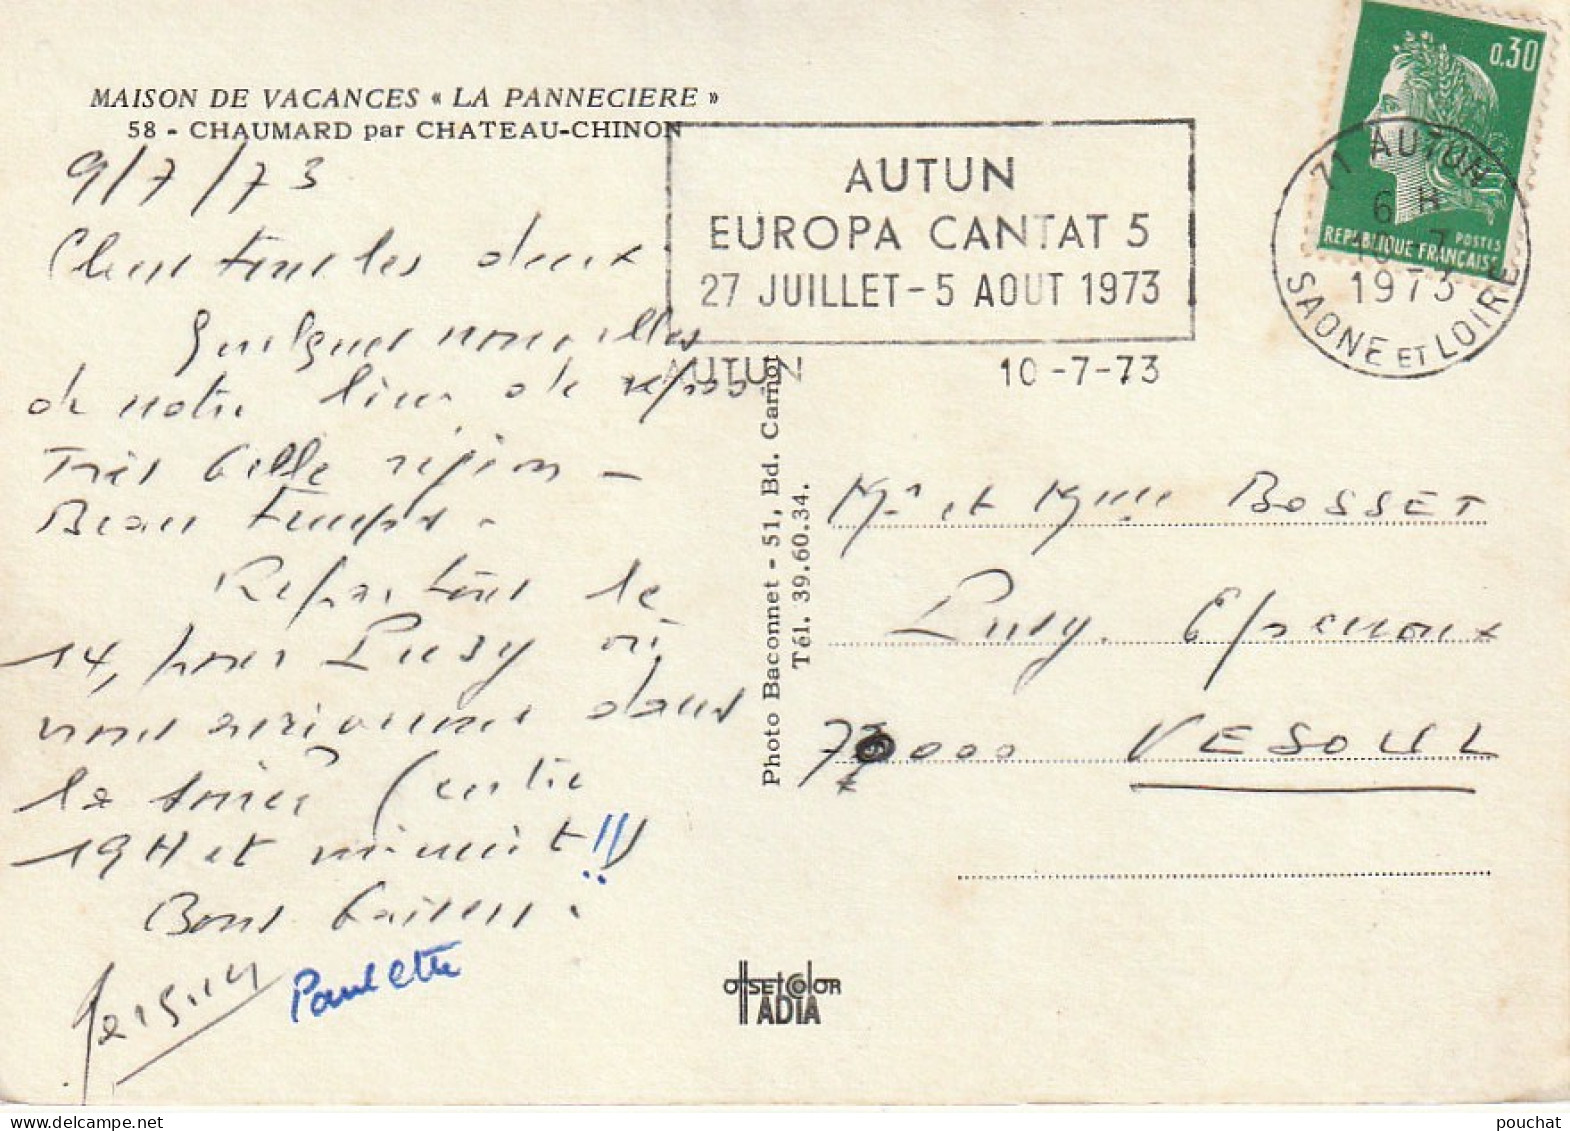 MAISON DE VACANCES « LA PANNECIERE »
58 - CHAUMARD par CHATEAU-CHINON
9/7/73
Chers tous les deux
Quelques nouvelles
de notre lieu de repos.
Très belle région -
Beau temps -
Repartons le
14, pour Pusy où
nous arriverons dans
la soirée (entre
19H et minuit !!)
Bons baisers.
Paulette
AUTUN
EUROPA CANTAT 5
27 JUILLET - 5 AOUT 1973
AUTUN 10-7-73
0,30
POSTES
REPUBLIQUE FRANCAISE
71 AUTUN
6 H
10 - 7
1973
SAONE ET LOIRE
Photo Baconnet - 51, Bd. Carnot
Tél. 39.60.34.
Mr et Mme BOSSET
Pusy. Epenoux
70000 VESOUL
OFFSET COLOR
IADIA
pouchat